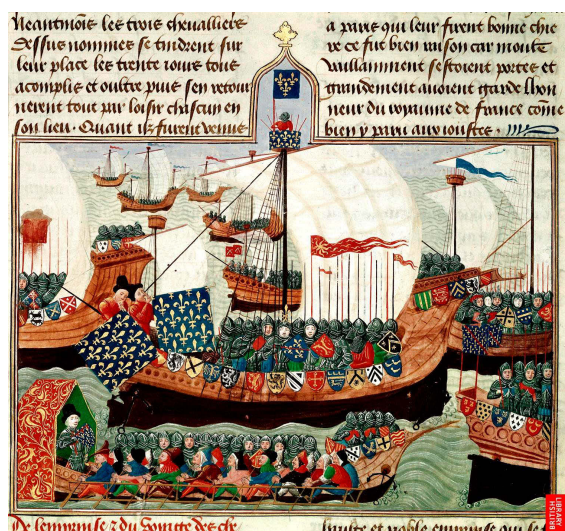 Neantmoīs les trois chevalliers
dessus nommes se tindrent sur
leur place les trente iours tous
acomplis et oultre puis sen retour
nerent tout par loisir chascun en
son lieu. Quant ilz furent venus
a paris qui leur firent bonne chie
re ce fut bien raison car moult
vaillamment sestoient portes et
grandement auoient garde lhon
neur du royaume de france cōme
bien y paru aux ioustes.
De lemprinse & du voyage des che
haulte et noble emprinse qui se
BRITISH
LIBRARY